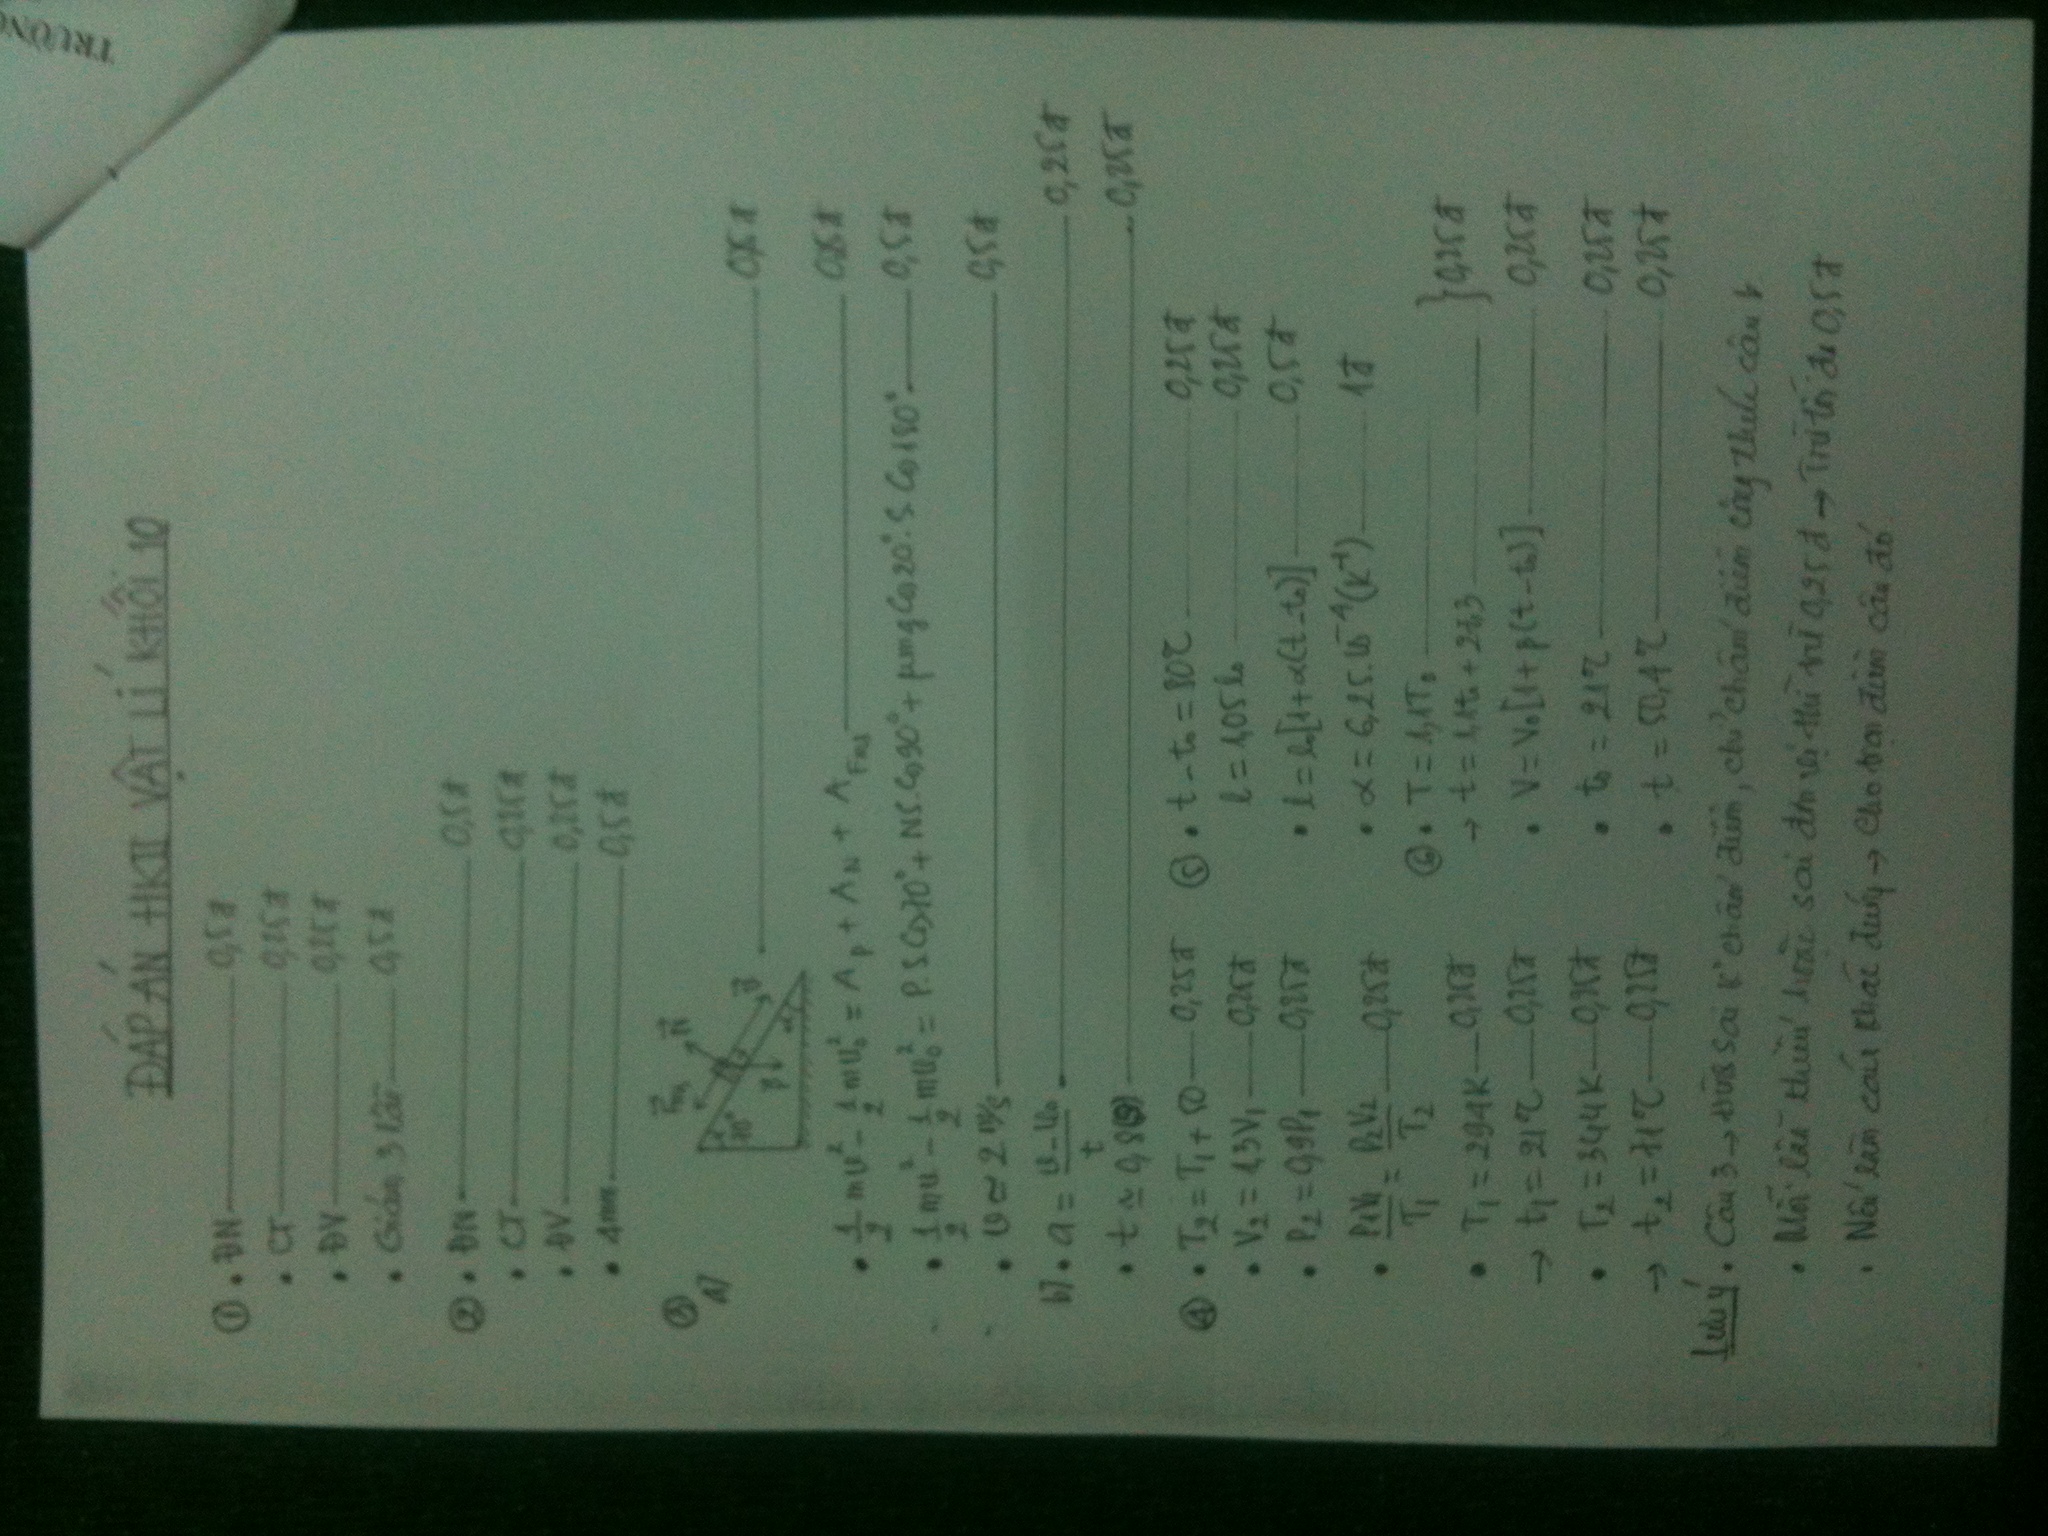 TRƯỜNG
ĐÁP ÁN HKII VẬT LÍ KHỐI 10
① • ĐN 0,5đ
• CT 0,25đ
• ĐV 0,25đ
• Giám 3 lần 0,5đ
② • ĐN 0,5đ
• CT 0,25đ
• ĐV 0,25đ
• 4mm 0,5đ
③
a)
Fms N
α 70° v
P α
• 1/2 mv² - 1/2 mv₀² = A_P + A_N + A_Fms
• 1/2 mv² - 1/2 mv₀² = P.S.Cos70° + NS.Cos90° + μmgCos20°.S.Cos180° 0,5đ
• v ≃ 2 m/s 0,5đ
b) • a = (v - v₀)/t 0,25đ
• t ≃ 0,8(s) 0,25đ
④ • T₂ = T₁ + 50 0,25đ
• V₂ = 1,3V₁ 0,25đ
• P₂ = 0,9P₁ 0,25đ
• P₁V₁/T₁ = P₂V₂/T₂ 0,25đ
• T₁ = 294K 0,25đ
→ t₁ = 21℃ 0,25đ
• T₂ = 344K 0,25đ
→ t₂ = 71℃ 0,25đ
⑤ • t - t₀ = 80℃ 0,25đ
l = 1,05l₀ 0,25đ
• l = l₀[1+α(t-t₀)] 0,5đ
• α = 6,25.10⁻⁴(K⁻¹) 1đ
⑥ • T = 1,1T₀
→ t = 1,1t₀ + 27,3 } 0,25đ
• V = V₀[1+β(t-t₀)] 0,25đ
• t₀ = 21℃ 0,25đ
• t = 50,4℃ 0,25đ
Lưu ý • Câu 3 → sai k° chấm điểm, chỉ chấm điểm công thức câu b
• Mỗi lần thiếu hoặc sai đơn vị thì trừ 0,25đ → Trừ tối đa 0,5đ
• Nếu làm cách khác đúng → Cho trọn điểm câu đó